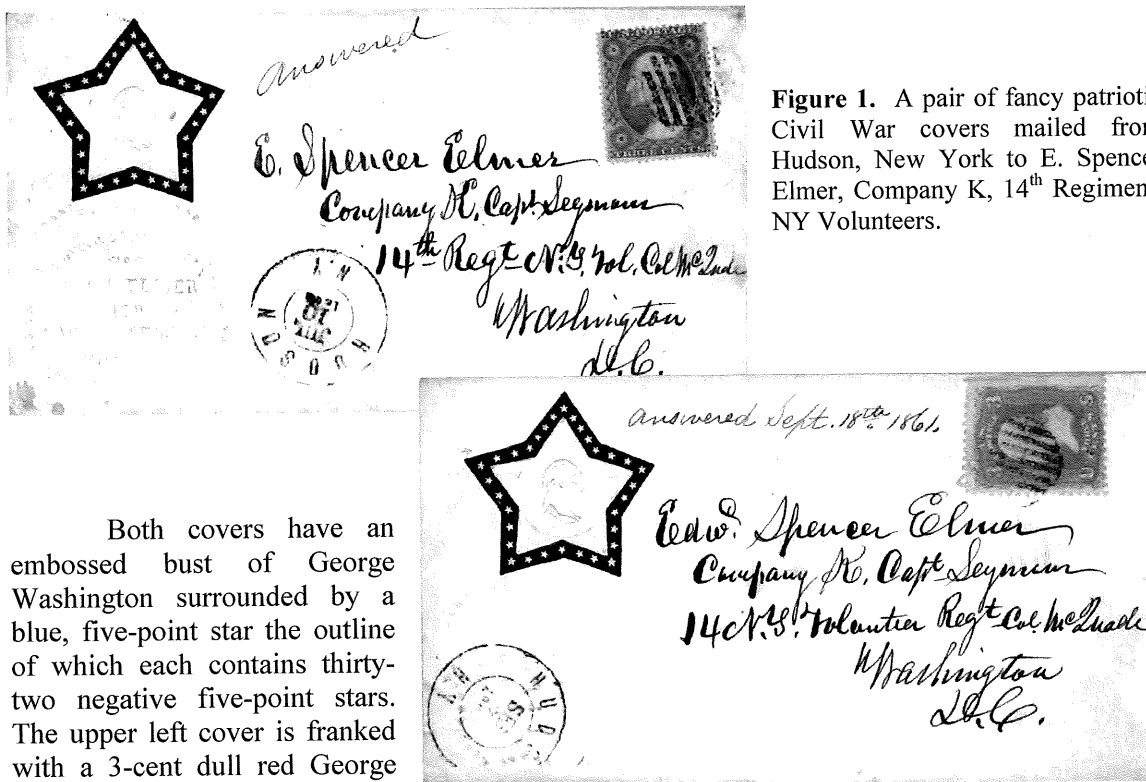 answered
E. Spencer Elmer
Company K, Capt Seymour
14th Regt N.Y. Vol. Col McQuade
Washington
D.C.
HUDSON N.Y.
Figure 1. A pair of fancy patrioti
Civil War covers mailed fro
Hudson, New York to E. Spence
Elmer, Company K, 14th Regimen
NY Volunteers.
answered Sept. 18th 1861.
Edwd. Spencer Elmer
Company K, Capt Seymour
14 N.Y. Volunteer Regt Col. McQuade
Washington
D.C.
HUD N.Y.
Both covers have an
embossed bust of George
Washington surrounded by a
blue, five-point star the outline
of which each contains thirty-
two negative five-point stars.
The upper left cover is franked
with a 3-cent dull red George